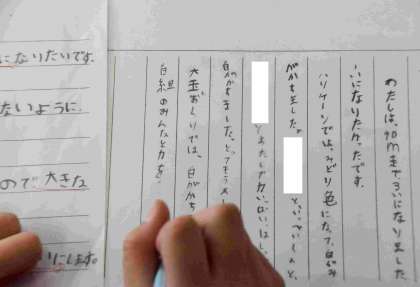 わたしは、90mまで3いになりました
いになりたかったです。
ハリケーンでは、みどり色になって、白がみ
がかちました。
と、いっぺいくんと、
とわたしが力いっぱいはし
白がかちました。とってもうれし
大玉おくりでは、白がかち
白組のみんなと力を
になりたいです。
ないように、
ので、大きな
にします。